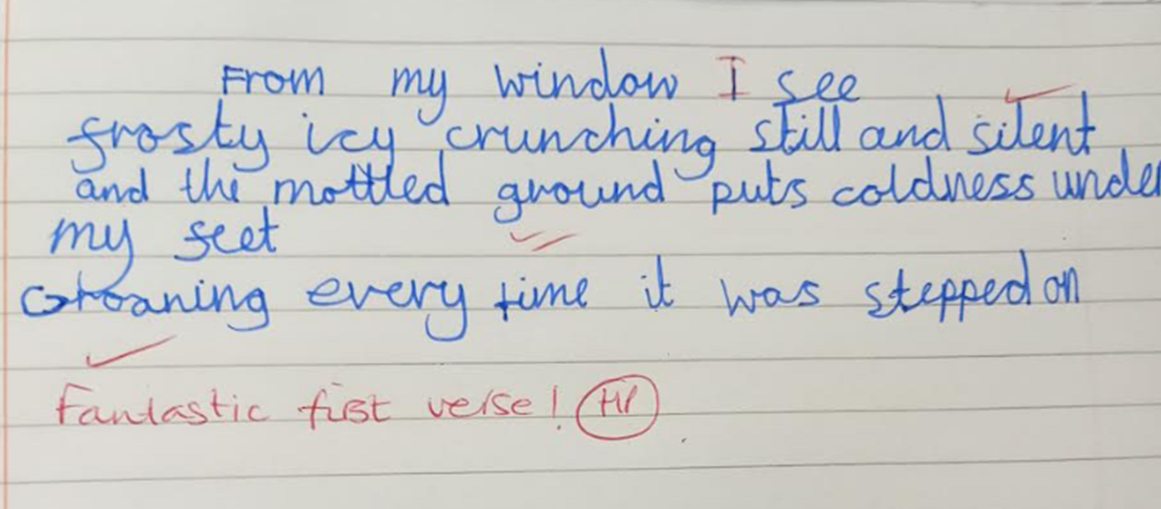 From my window I see
frosty icy crunching still and silent
and the mottled ground puts coldness under
my feet
Groaning every time it was stepped on
Fantastic first verse! HP